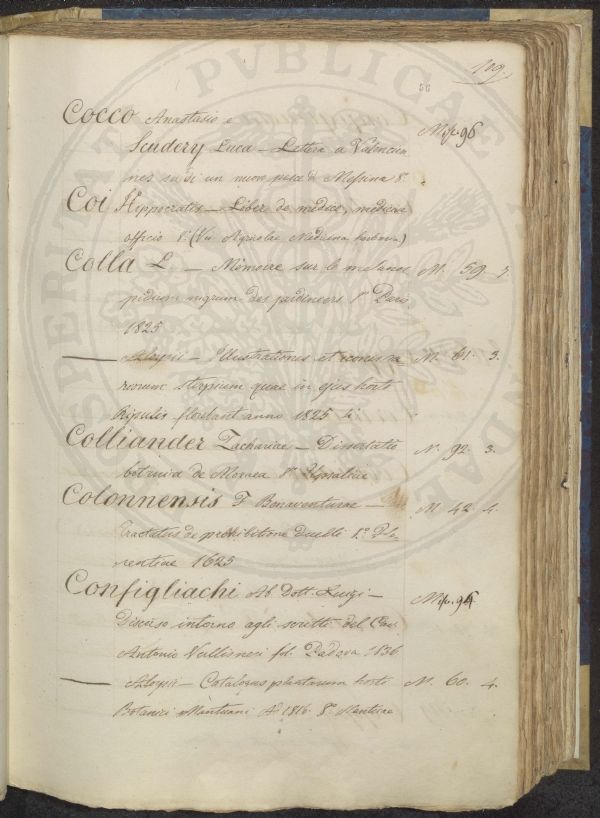 109.
56
COCCO Anastasio e Misc. 96
Scudery Luca – Lettera a Valencien
nes su di un nuovo pesce di Messina 8.
Coi Hippocrates – Liber de medico, medicae
officio 8. (Vic Agricolae Medicina herbaria)
Colla L. – Mémoire sur le melanos M. 59. 7.
pidium nigrum des jardiniers Paris
1825
— Aloysii – Illustrationes et icones ra M. 61. 3.
riorum stirpium quae in ejus horto
Ripulis florebant anno 1825 4.
Colliander Zachariae – Dissertatio N. 92. 3.
botanica de Moraea Upsaliae
Colonnensis F. Bonaventurae – M. 42. 4.
Tractatus de prohibitione duelli Flo
rentiae 1625
Configliachi Ab. Dott. Luigi – Misc. 94
Discorso intorno agli scritti del Cav.
Antonio Vallisneri fol. Padova 1836
— Aloysii – Catalogus plantarum horti M. 60. 4.
Botanici Mantuani A. 1816. 8. Mantuae
PUBLICAE
PROSPERITATI